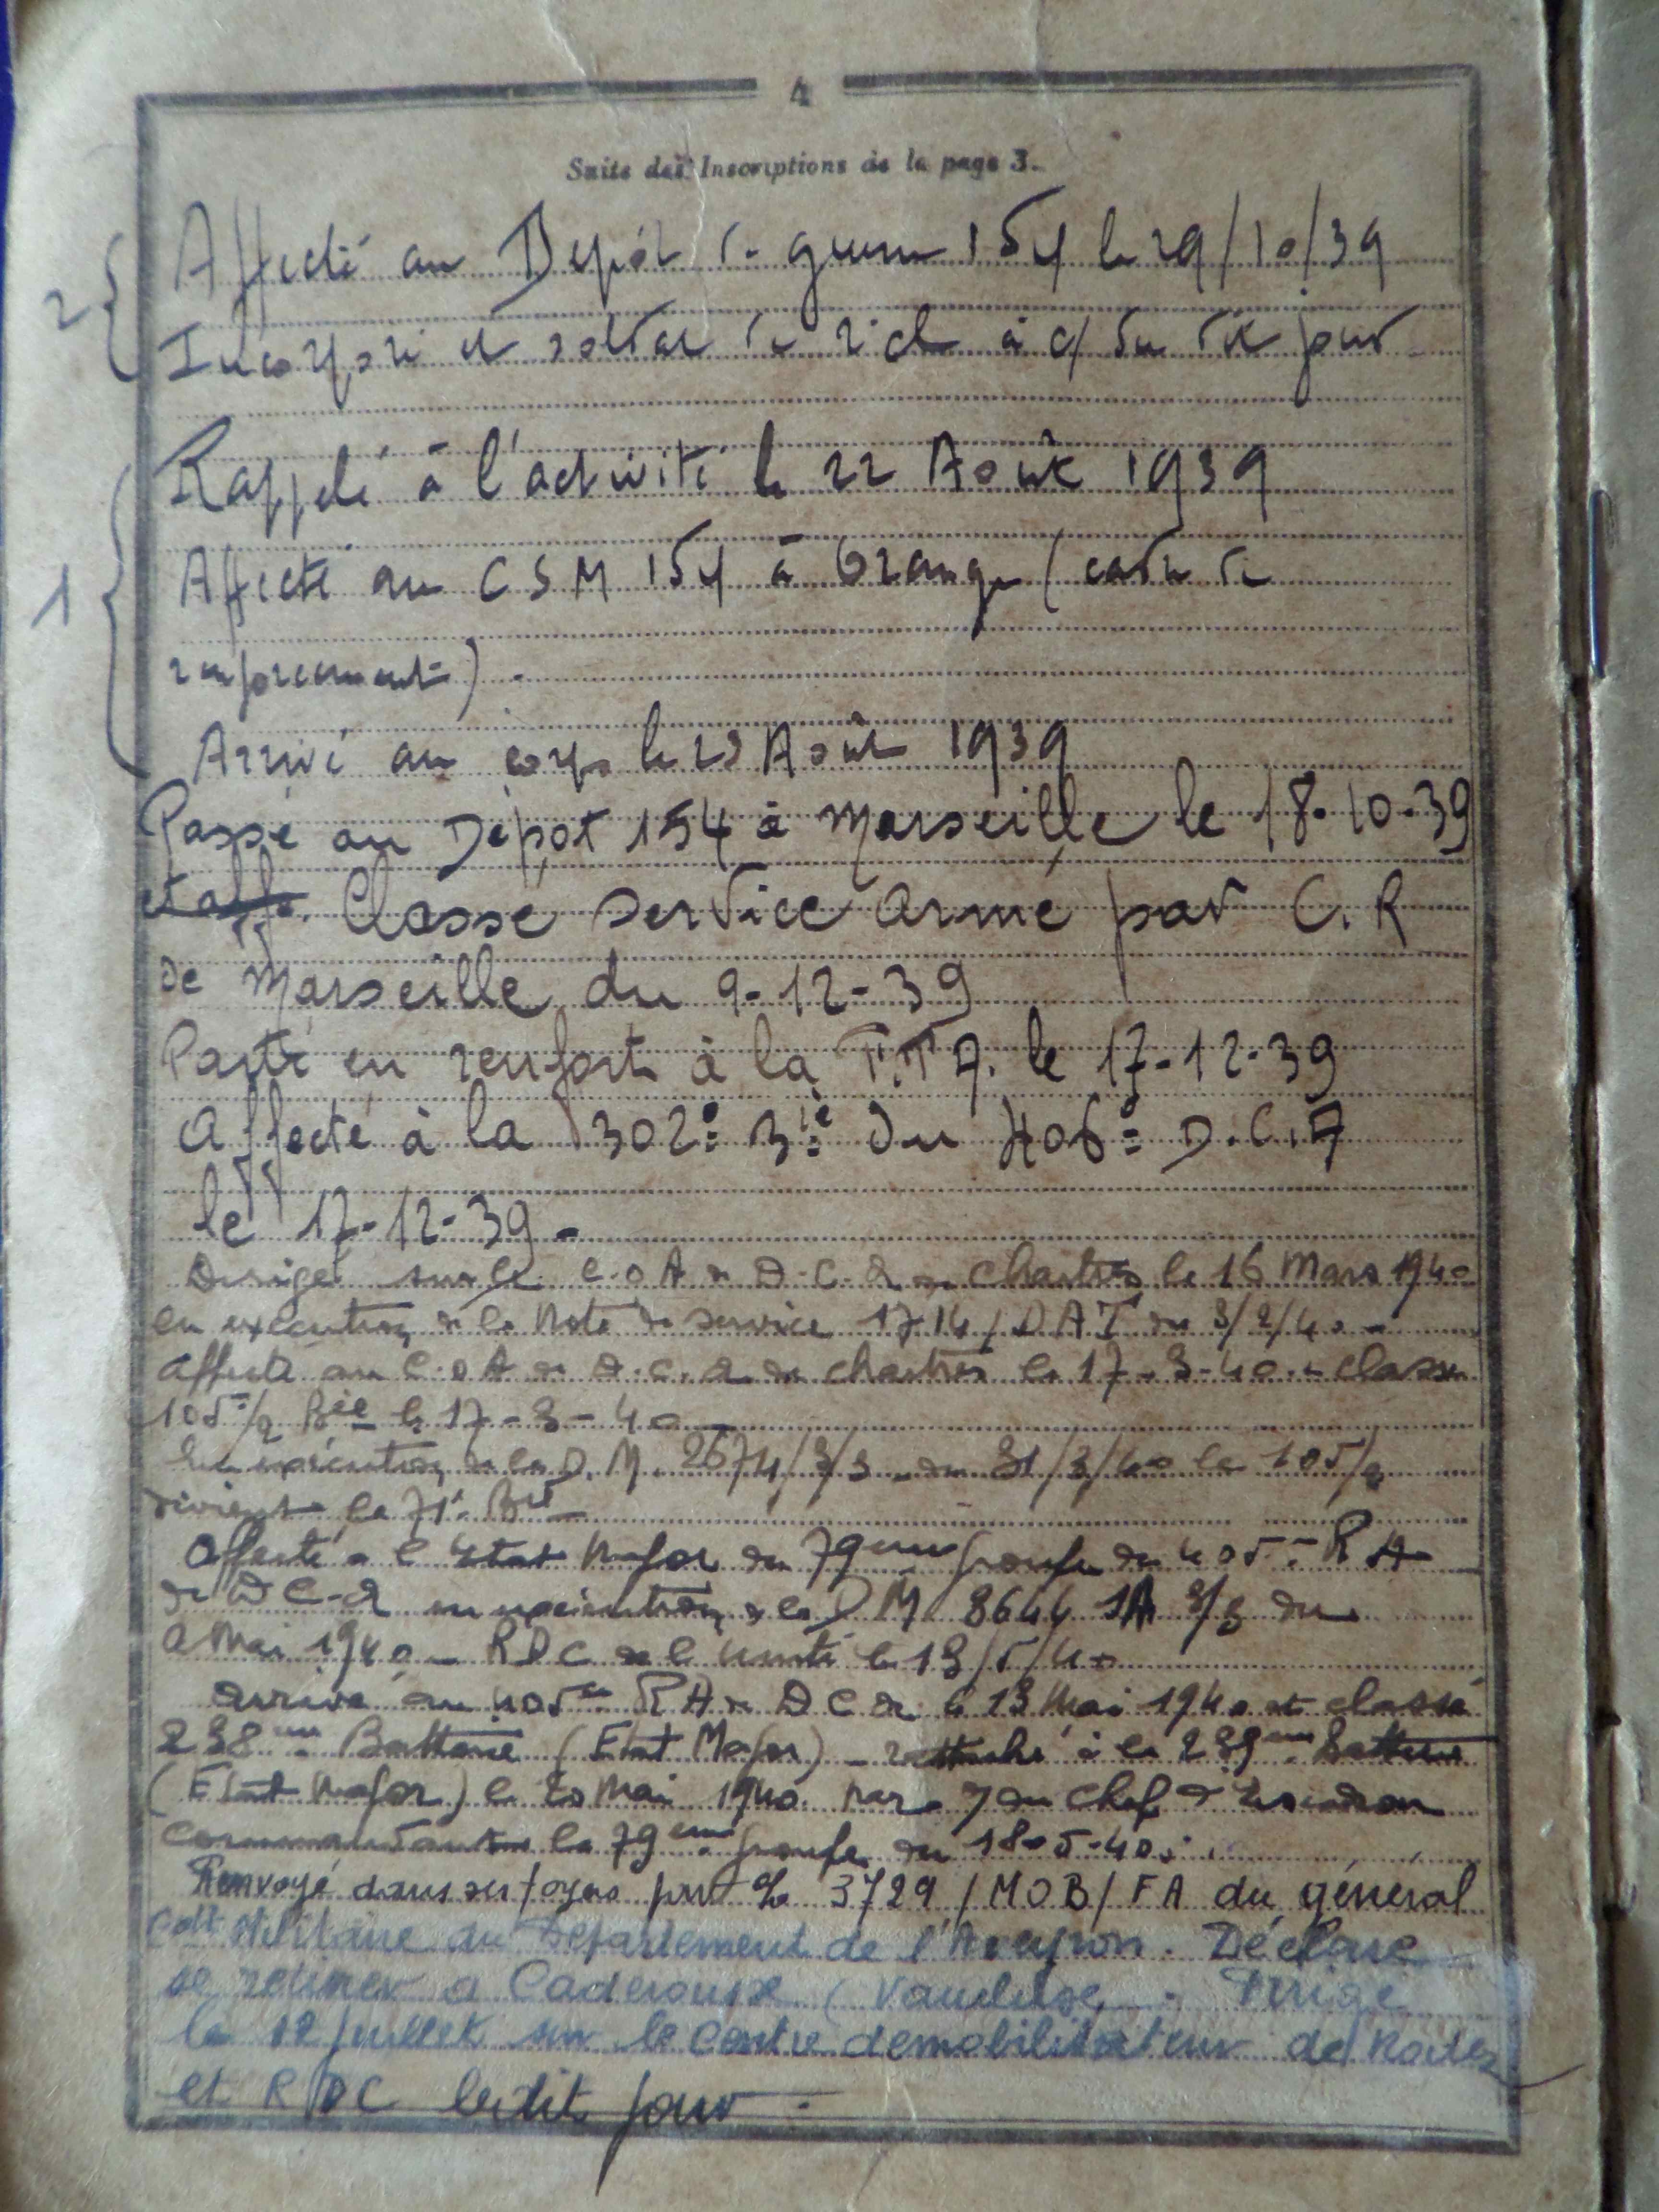 4
Suite des Inscriptions de la page 3.
2
Affecté au Dépôt de guerre 154 le 29/10/39
Incorporé et soldat de 2è cl à c/ du dit jour
Rappelé à l'activité le 22 Août 1939
1
Affecté au CSM 154 à Orange (cadre de
renforcement).
Arrivé au corps le 23 Août 1939
Passé au Dépôt 154 à Marseille le 18-10-39
et affe. Classé service armé par C.R
de Marseille du 9-12-39
Parti en renfort à la le 17-12-39
Affecté à la 302e Bie du 406e D.C.A
le 17-12-39.
Dirigé sur le C.O A de D.C.A de Chartres le 16 Mars 1940
en exécution de la Note de service 1714/DAT du 3/2/40
Affecté au C.O A de D.C.A de Chartres le 17-3-40 - classé
105e/2 Bie le 17-3-40
En exécution de la D.M. 2674/3/3 du 31/3/40 la 105/2
devient la 71e Bie
Affecté à l'Etat Major du 79eme groupe du 405e R A
de D C A en exécution de la D M 8644 1A 3/3 du
Mai 1940 - RDC de l'unité le 13/5/40
arrivé au 405e RA de D C A le 13 Mai 1940 et classé
238eme Batterie (Etat Major) - rattaché à la 239eme Batterie
(Etat Major) le 20 Mai 1940 par du Chef d'Escadron
Commandant le 79eme groupe du 18-5-40.
Renvoyé dans ses foyers par 3729/MOB/FA du général
Cdt Militaire du Département de l'Aveyron. Déclare
se retirer à Caderousse (Vaucluse. - Dirigé
le 12 juillet sur le Centre démobilisateur de Rodez
et RDC ledit jour.